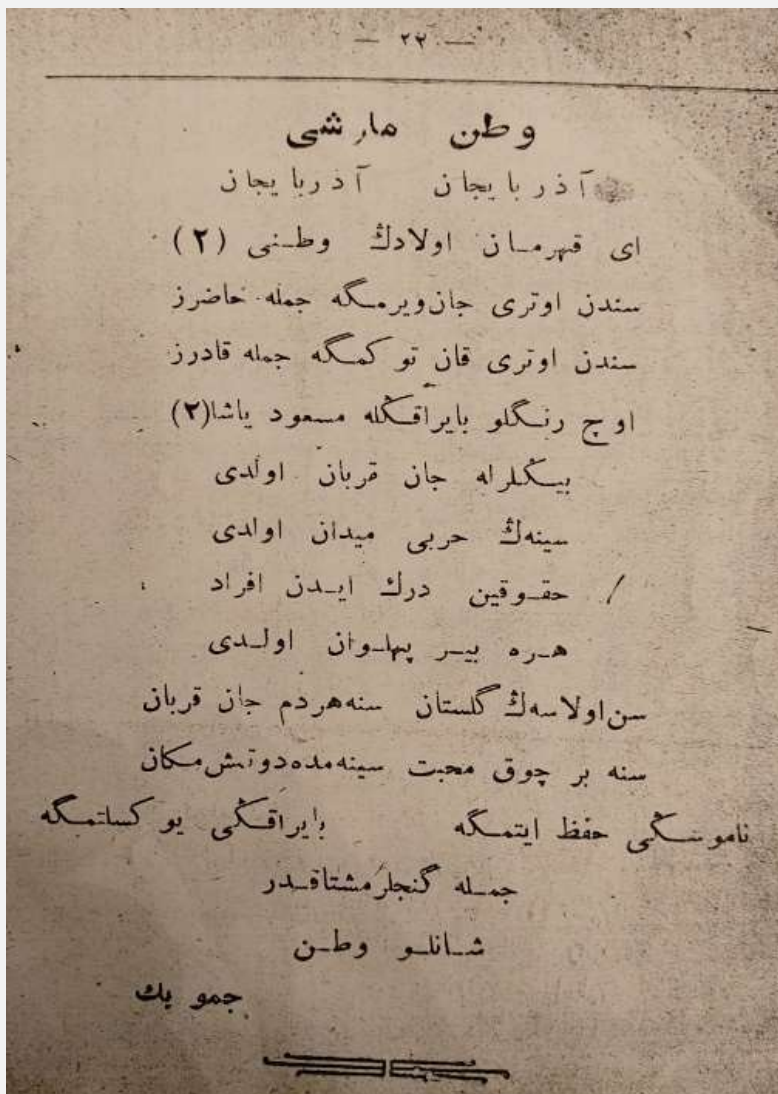 — ٢٢ —
وطن مارشى
آذربايجان آذربايجان
اى قهرمان اولادڭ وطنى (٢)
سندن اوترى جان ويرمگه جمله حاضرز
سندن اوترى قان توكمگه جمله قادرز
اوچ رنگلو بايراقڭله مسعود ياشا (٢)
بيڭلرله جان قربان اولدى
سينه‌ڭ حربى ميدان اولدى
حقوقين درك ايدن افراد
هره بير پهلوان اولدى
سن اولاسه‌ڭ گلستان سنه هردم جان قربان
سنه بر چوق محبت سينه‌مده دوتمش مكان
ناموسڭى حفظ ايتمگه بايراقڭى يوكسلتمگه
جمله گنجلر مشتاقدر
شانلو وطن
جمو بك